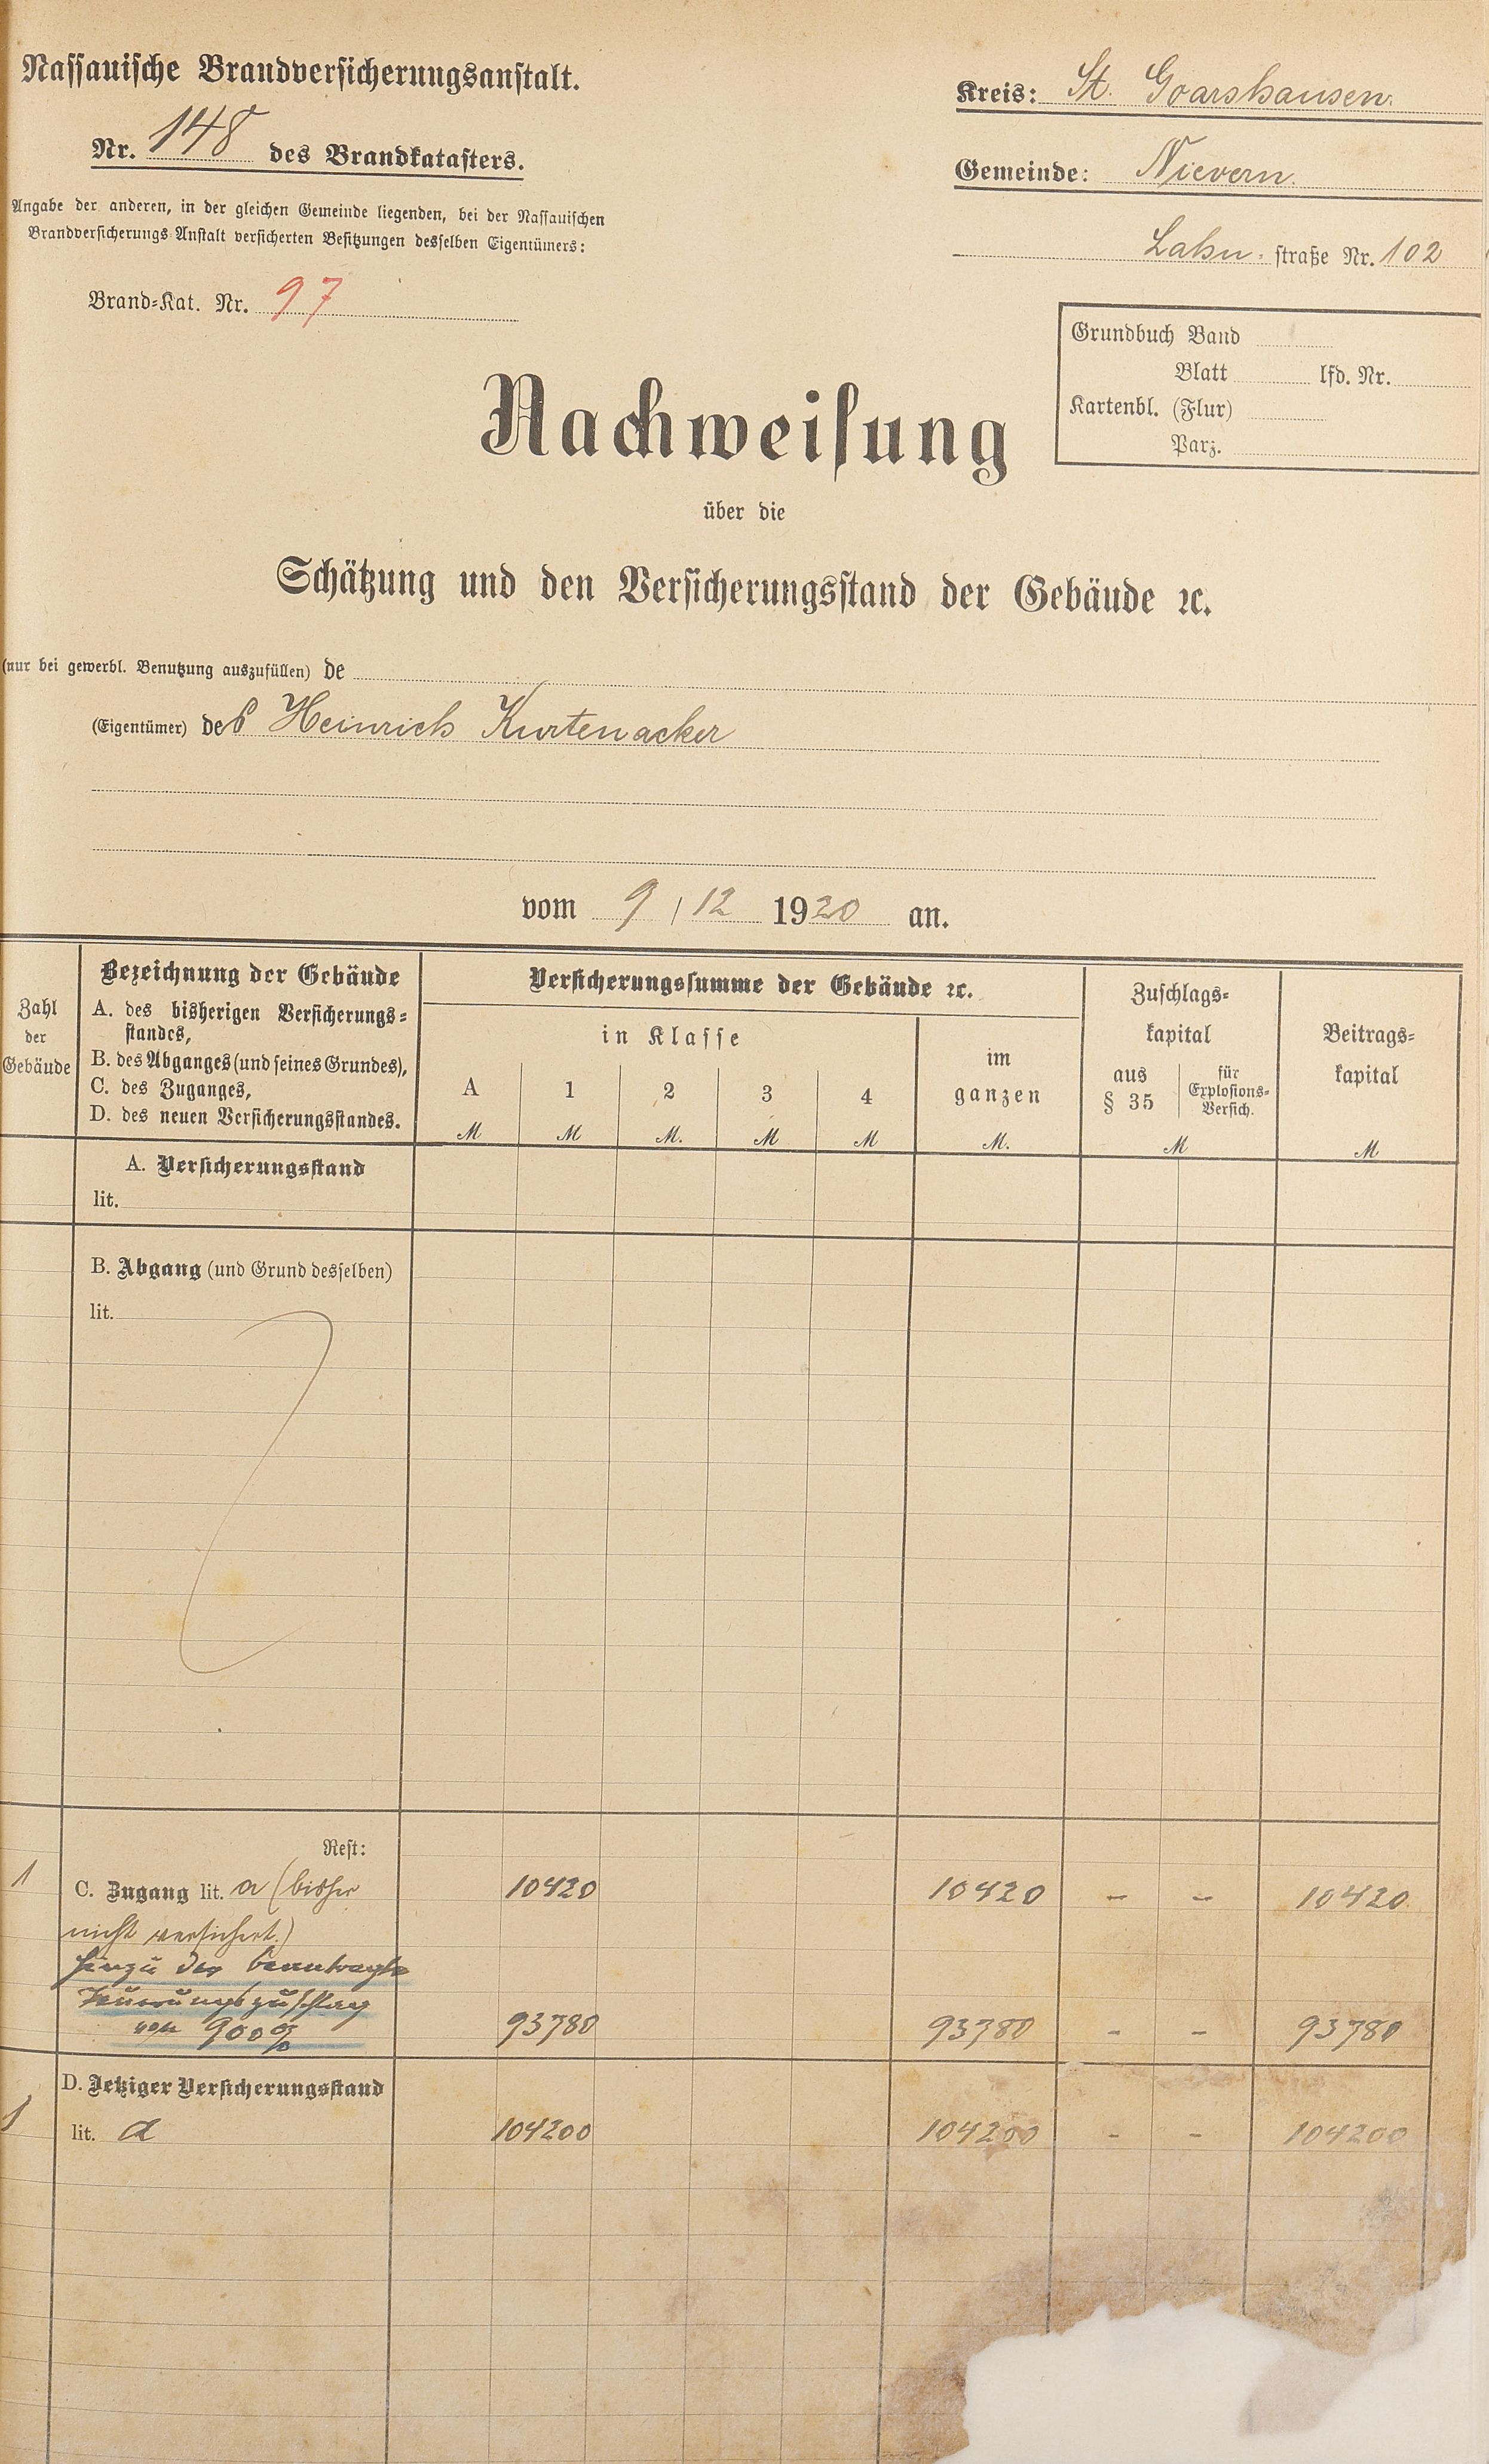 Nassauische Brandversicherungsanstalt.
Nr. 148 des Brandkatasters.
Angabe der anderen, in der gleichen Gemeinde liegenden, bei der Nassauischen
Brandversicherungs-Anstalt versicherten Besitzungen desselben Eigentümers:
Brand-Kat. Nr. 97
Kreis: St. Goarshausen.
Gemeinde: Nievern.
Lahn-straße Nr. 102
Grundbuch Band
Blatt lfd. Nr.
Kartenbl. (Flur)
Parz.
Nachweisung
über die
Schätzung und den Versicherungsstand der Gebäude ꝛc.
(nur bei gewerbl. Benutzung auszufüllen) de
(Eigentümer) des Heinrich Kurtenacker
vom 9/12 1920 an.
Zahl
der
Gebäude
Bezeichnung der Gebäude
A. des bisherigen Versicherungs-
standes,
B. des Abganges (und seines Grundes),
C. des Zuganges,
D. des neuen Versicherungsstandes.
Versicherungssumme der Gebäude ꝛc.
in Klasse
A 1 2 3 4
M M M. M M
im
ganzen
M.
Zuschlags-
kapital
aus
§ 35
für
Explosions-
Versich.
M
Beitrags-
kapital
M
A. Versicherungsstand
lit.
B. Abgang (und Grund desselben)
lit.
Rest:
1 C. Zugang lit. a (bisher 10420 10420 - - 10420
nicht versichert.)
hinzu der beantragte
Teuerungszuschlag
von 900% 93780 93780 - - 93780
D. Jetziger Versicherungsstand
1 lit. a 104200 104200 - - 104200